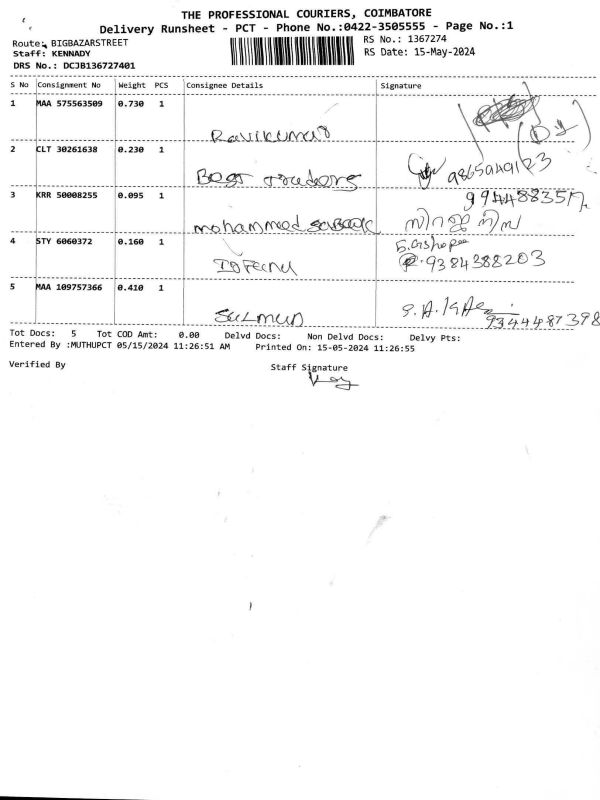 THE PROFESSIONAL COURIERS, COIMBATORE
Delivery Runsheet - PCT - Phone No.:0422-3505555 - Page No.:1
Route: BIGBAZARSTREET
RS No.: 1367274
Staff: KENNADY
RS Date: 15-May-2024
DRS No.: DCJB136727401
S No Consignment No Weight PCS Consignee Details Signature
1 MAA 575563509 0.730 1
Ravikumar
2 CLT 30261638 0.230 1
9865949123
Best traders
3 KRR 50008255 0.095 1
9944883517
mohammed
4 STY 6060372 0.160 1
9384388203
5 MAA 109757366 0.410 1
Salman
9344487398
Tot Docs: 5 Tot COD Amt: 0.00 Delvd Docs: Non Delvd Docs: Delvy Pts:
Entered By :MUTHUPCT 05/15/2024 11:26:51 AM Printed On: 15-05-2024 11:26:55
Verified By
Staff Signature